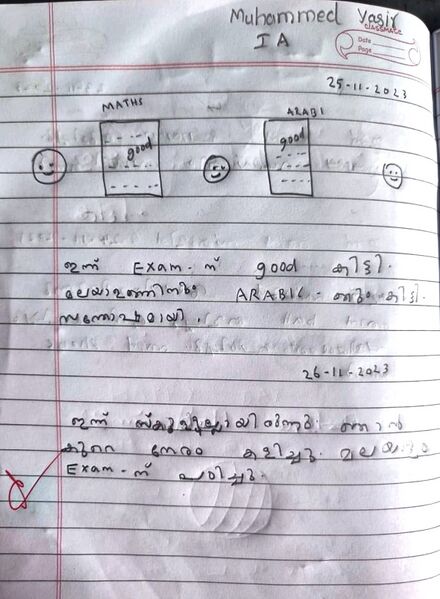 Muhammed Yasir
I A
CLASSMATE
Date
Page
25-11-2023
MATHS
ARABI
good
good
ഇന്ന് Exam-ന് good കിട്ടി.
മലയാളത്തിനും ARABIC-നും കിട്ടി
സന്തോഷമായി.
26-11-2023
ഇന്ന് സ്കൂളില്ലായിരുന്നു. ഞാൻ
കുറെ നേരം കളിച്ചു. മലയാളം
Exam-ന് പഠിച്ചു.